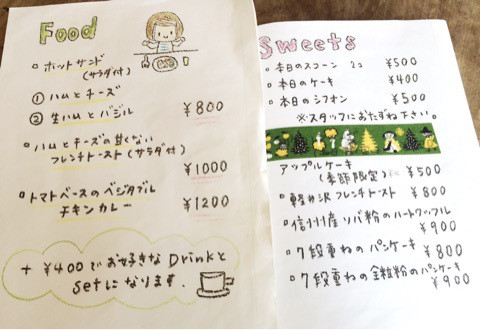 Food
ホットサンド
(サラダ付)
① ハムとチーズ
② 生ハムとバジル ¥800
ハムとチーズの甘くない
フレンチトースト(サラダ付)
¥1000
トマトベースのベジタブル
チキンカレー ¥1200
+ ¥400でお好きなDrinkと
setになります.
Sweets
本日のスコーン 2コ ¥500
本日のケーキ ¥400
本日のシフォン ¥500
※スタッフにおたずね下さい。
アップルケーキ
(季節限定) ¥500
軽め沢 フレンチトースト ¥800
信州産ソバ粉のハートワッフル
¥900
7段重ねのパンケーキ ¥800
7段重ねの全粒粉のパンケーキ
¥900